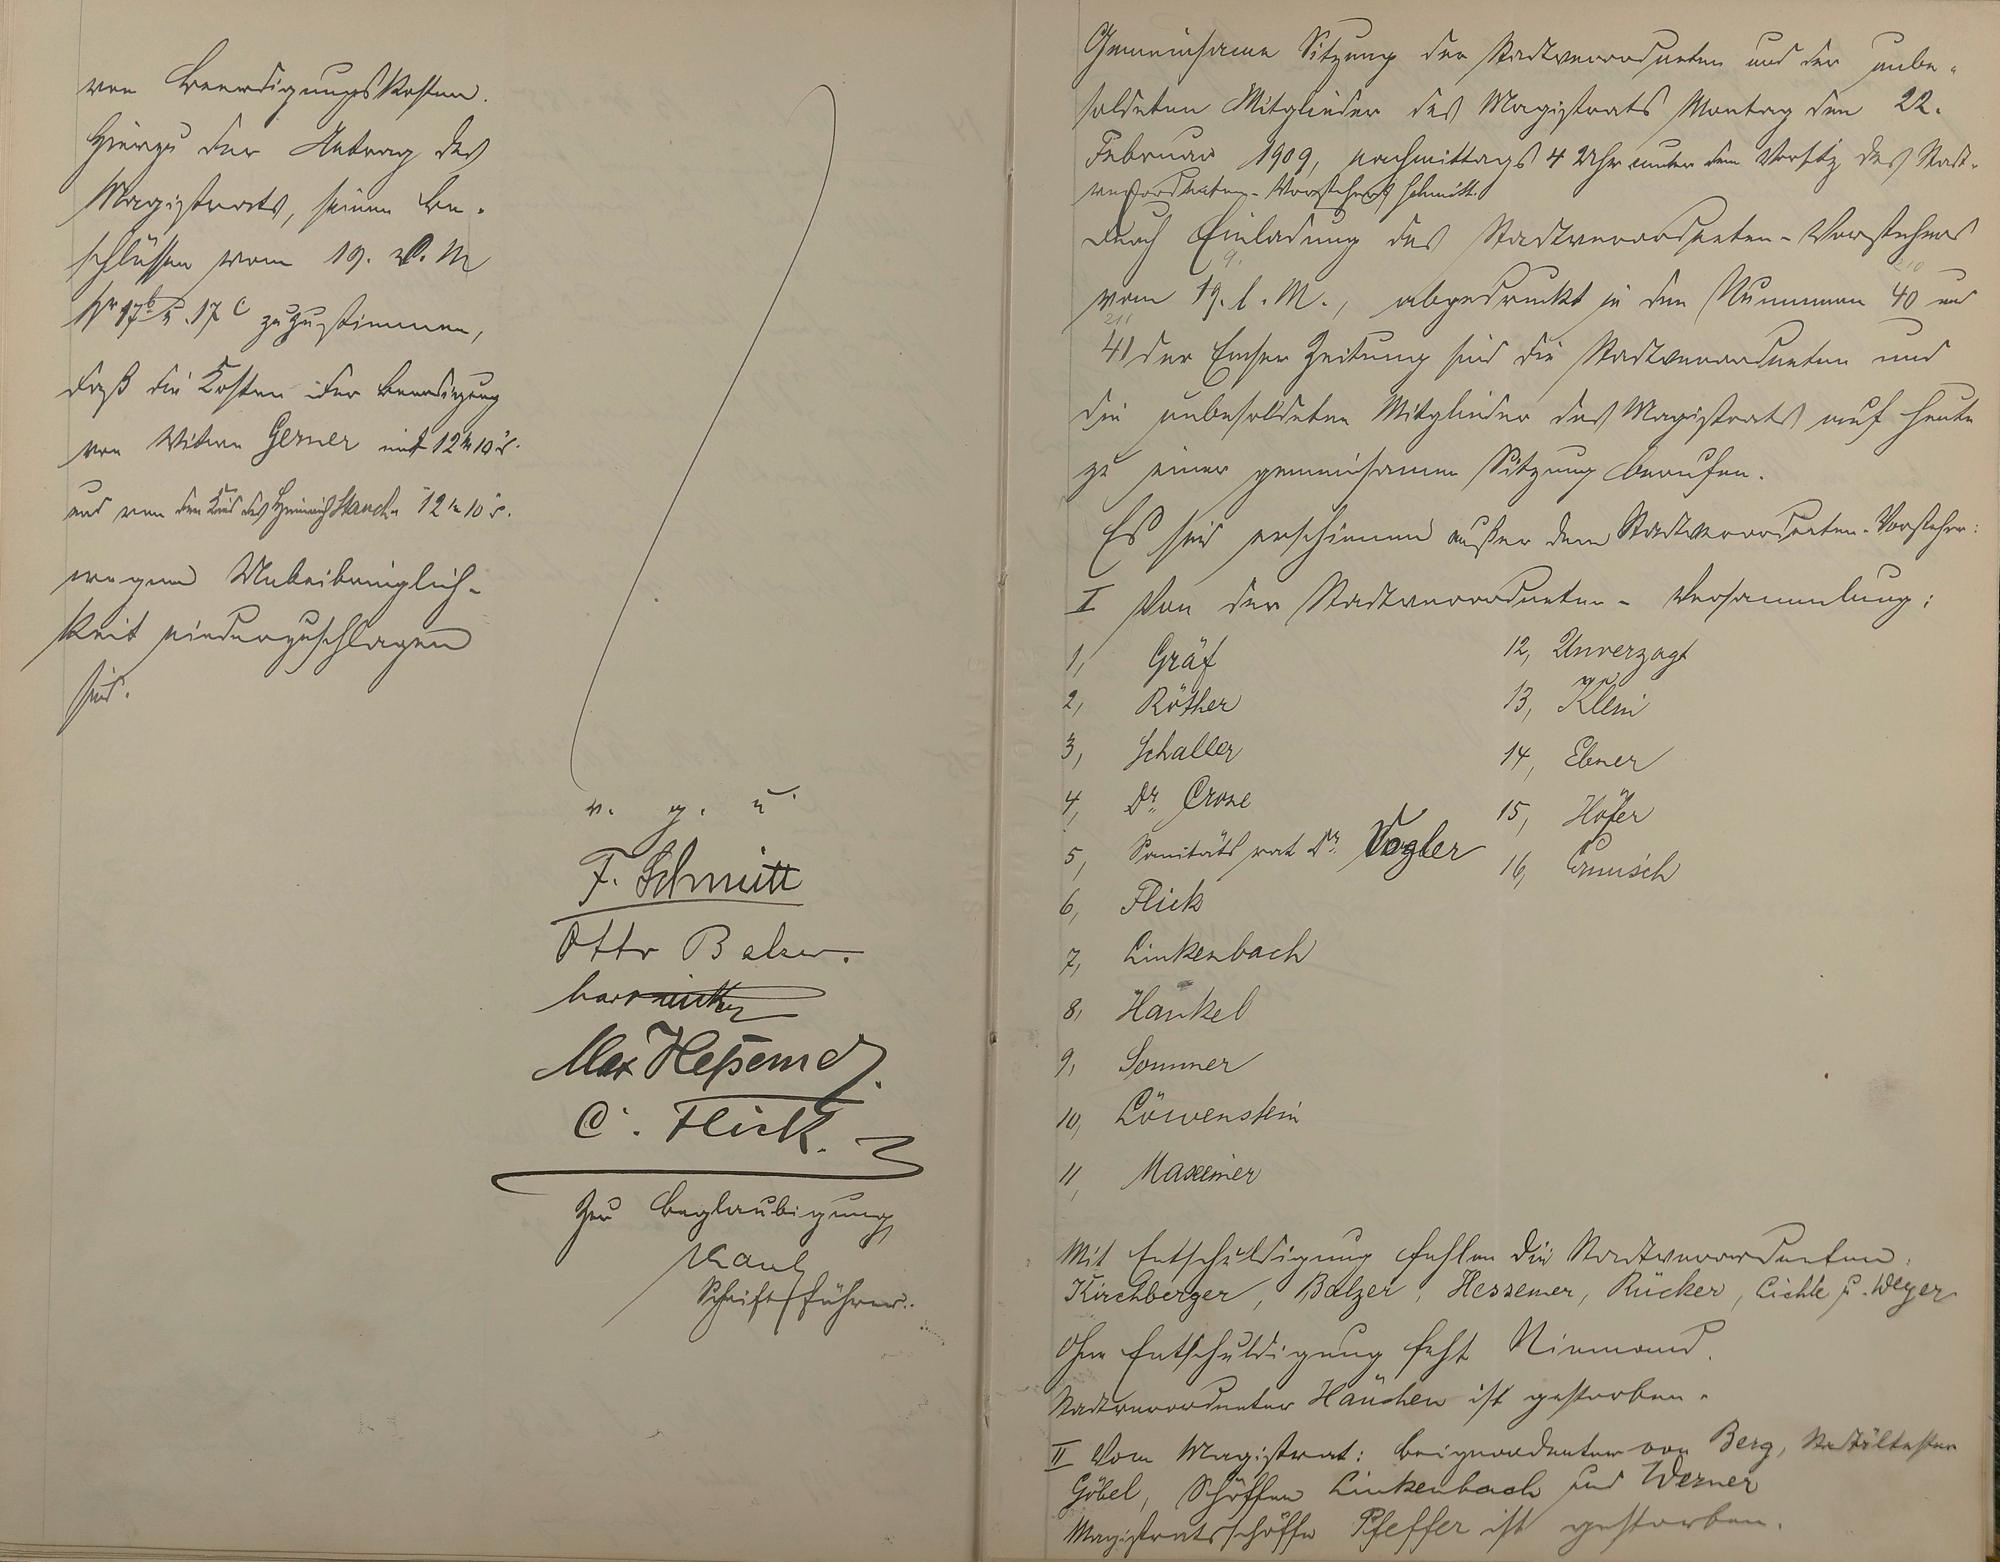 von Beerdigungskosten.
Hierzu der Antrag des
Magistrats, seinen Be-
schlüssen vom 19. d. M
Nr 17b u. 17c zuzustimmen,
daß die Kosten der Beerdigung
von Witwe Gerner mit 12 M 10 S.
und von dem Kind des Heinrich Stauch 12 M 10 S.
wegen Unbeibringlich-
keit niederzuschlagen
sind.
v. g. u.
F. Schmitt
Otto Balzer.
Max Hessemer.
C. Flick.
Zur Beglaubigung
Kaul
Schriftführer.
Gemeinsame Sitzung der Stadtverordneten und der unbe-
soldeten Mitglieder des Magistrats Montag den 22.
Februar 1909, nachmittags 4 Uhr unter dem Vorsitz des Stadt-
verordneten-Vorstehers Schmitt.
Durch Einladung des Stadtverordneten-Vorstehers
vom 19. l. M., abgedruckt in den Nummern 40 und
41 der Emser Zeitung sind die Stadtverordneten und
die unbesoldeten Mitglieder des Magistrats auf heute
zu einer gemeinsamen Sitzung berufen.
Es sind erschienen außer dem Stadtverordneten-Vorsteher:
I Von der Stadtverordneten-Versammlung:
1, Gräf
2, Röther
3, Schaller
4, Dr. Crone
5, Sanitätsrat Dr. Vogler
6, Flick
7, Linkenbach
8, Hankel
9, Sommer
10, Löwenstein
11, Maxeiner
12, Unverzagt
13, Klein
14, Ebner
15, Höfer
16, Ermisch
Mit Entschuldigung fehlen die Stadtverordneten:
Kirchberger, Balzer, Hessemer, Rücker, Lichte u. Weyer
Ohne Entschuldigung fehlt Niemand.
Stadtverordneter Häuchen ist gestorben.
II Vom Magistrat: Beigeordneter von Berg, Stadtältester
Göbel, Schöffen Linkenbach und Werner
Magistratsschöffe Pfeffer ist gestorben.